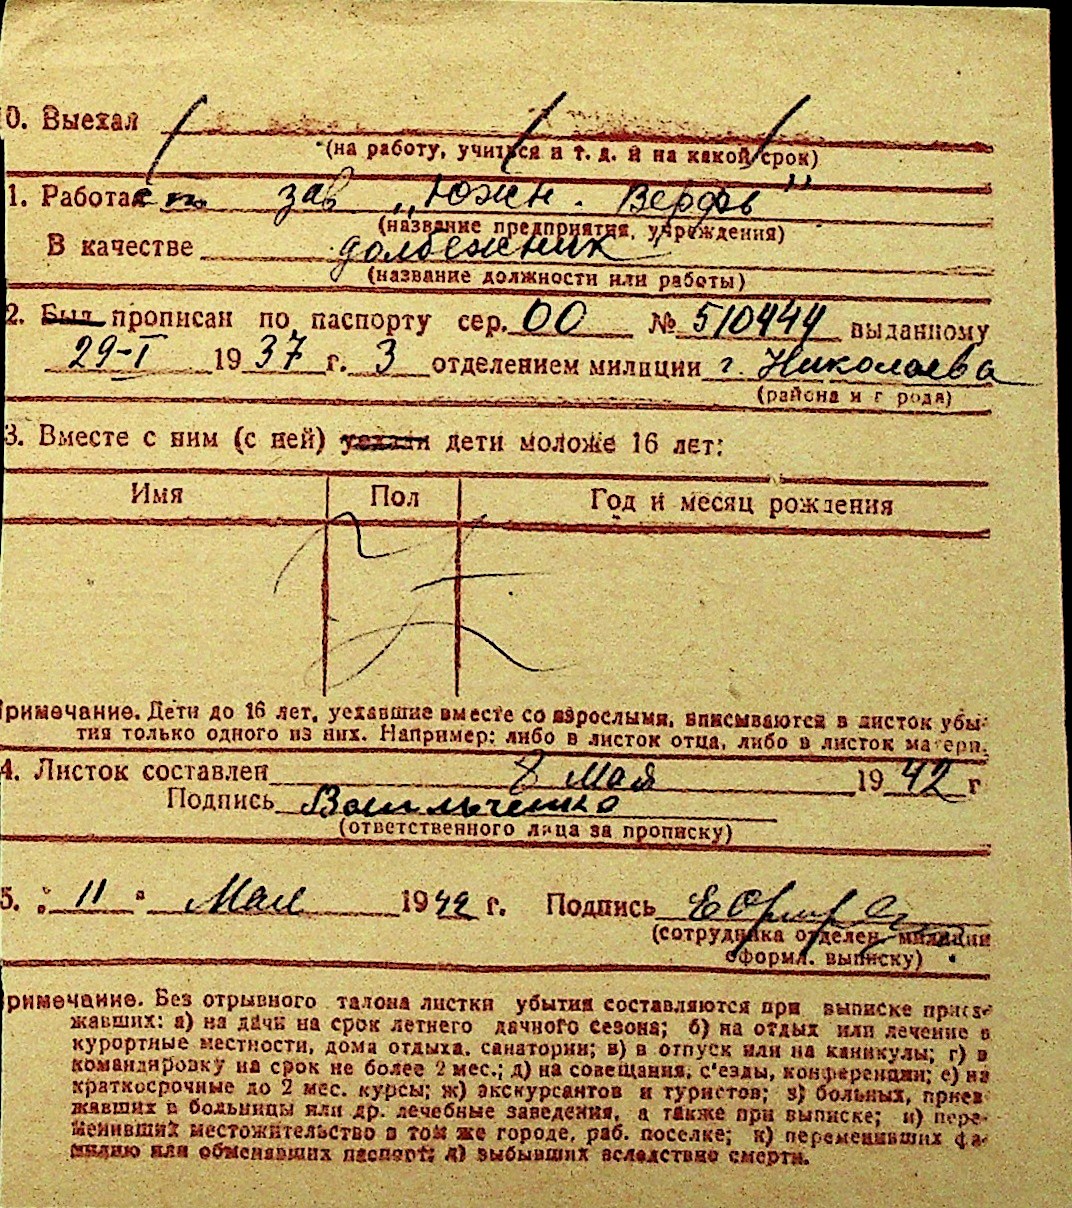 0. Выехал
(на работу, учиться и т. д. и на какой срок)
1. Работает зав „Южн. Верфь”
(название предприятия, учреждения)
В качестве долбежник
(название должности или работы)
2. Был прописан по паспорту сер. 00 № 510444 выданному
29-I 1937 г. 3 отделением милиции г. Николаева
(района и города)
3. Вместе с ним (с ней) уехали дети моложе 16 лет:
Имя Пол Год и месяц рождения
римечание. Дети до 16 лет, уехавшие вместе со взрослыми, вписываются в листок убы-
тия только одного из них. Например: либо в листок отца, либо в листок матери.
4. Листок составлен 8 Мая 1942 г
Подпись Васильченко
(ответственного лица за прописку)
5. „ 11 “ Мая 1942 г. Подпись
(сотрудника отделен. милиции
оформл. выписку)
римечание. Без отрывного талона листки убытия составляются при выписке приез-
жавших: а) на дачи на срок летнего дачного сезона; б) на отдых или лечение в
курортные местности, дома отдыха, санатории; в) в отпуск или на каникулы; г) в
командировку на срок не более 2 мес.; д) на совещания, с'езды, конференции; е) на
краткосрочные до 2 мес. курсы; ж) экскурсантов и туристов; з) больных, приез
жавших в больницы или др. лечебные заведения, а также при выписке; и) пере-
менивших местожительство в том же городе, раб. поселке; к) переменивших фа-
милию или обменявших паспорт; л) выбывших вследствие смерти.